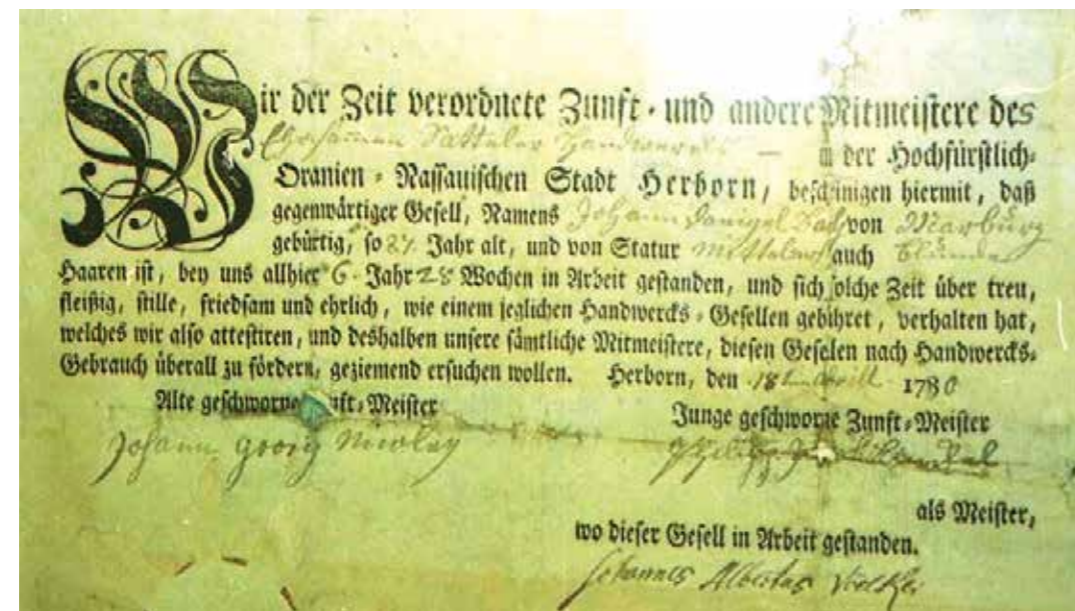 Wir der Zeit verordnete Zunft- und andere Mitmeistere des
Ehrsamen Satteler Handwercks — in der Hochfürstlich-
Oranien-Nassauischen Stadt Herborn, bescheinigen hiermit, daß
gegenwärtiger Gesell, Namens Johann Danigel von Marburg
gebürtig, so 27 Jahr alt, und von Statur mittelmes auch blunde
Haaren ist, bey uns allhier 6 Jahr 28 Wochen in Arbeit gestanden, und sich solche Zeit über treu,
fleißig, stille, friedsam und ehrlich, wie einem jeglichen Handwercks-Gesellen gebühret, verhalten hat,
welches wir also attestiren, und deshalben unsere sämtliche Mitmeistere, diesen Geselen nach Handwercks-
Gebrauch überall zu fördern, geziemend ersuchen wollen. Herborn, den 18t Aprill 1780
Alte geschworne Zunft-Meister
Junge geschworne Zunft-Meister
Johann Georg Nicolay
als Meister,
wo dieser Gesell in Arbeit gestanden.
Johannes Albertus